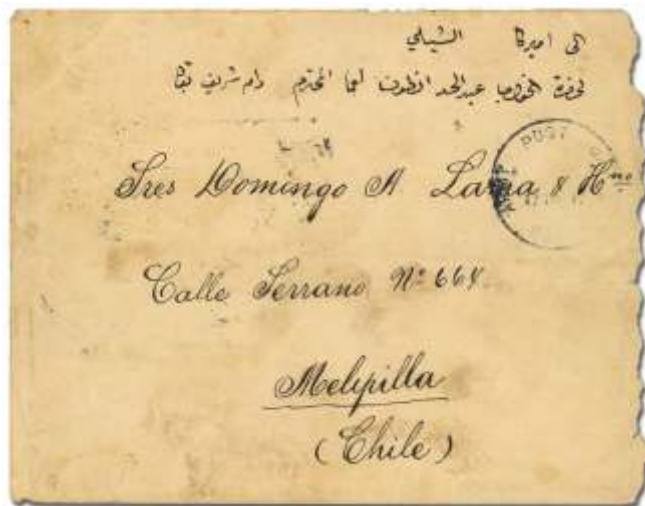 الى اميركا الشيلي
لحضرة الخواجا عبدالاحد انطون لعما المحترم دام شريف بقاه
Sres Domingo A Lama & Hno
Calle Serrano Nº 664
Melipilla
(Chile)
POST